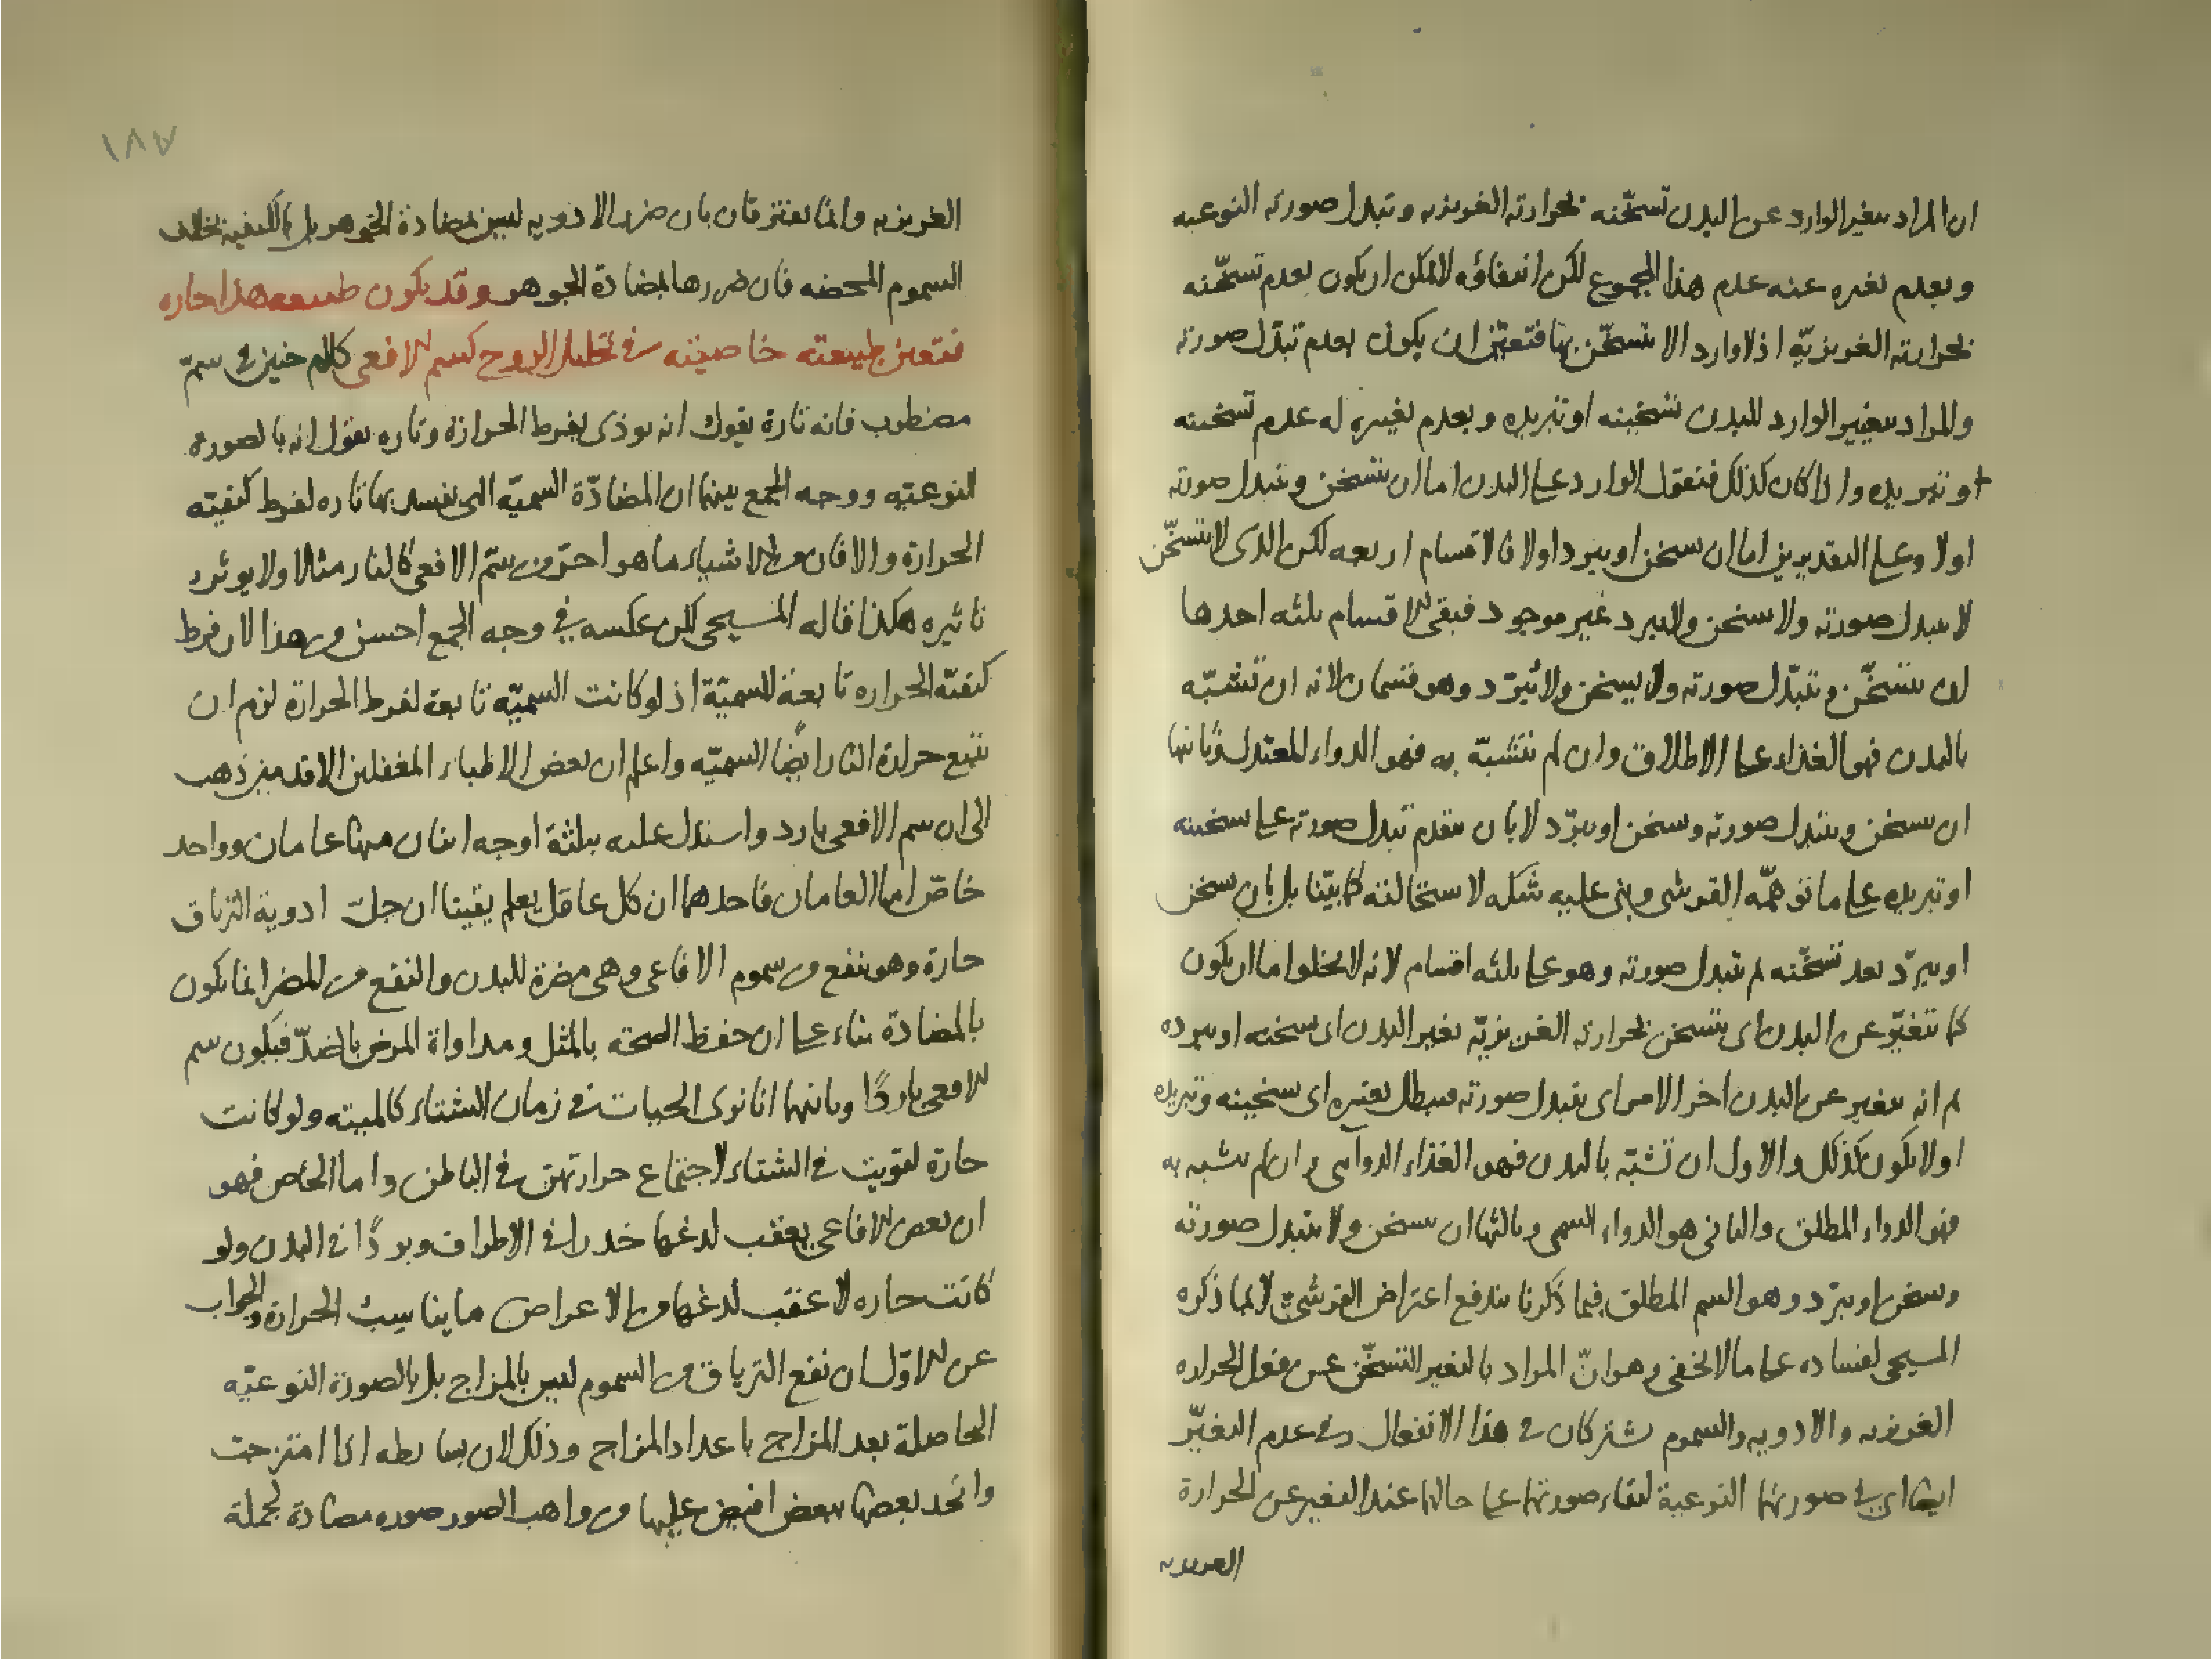 ان المراد بتغير الوارد عن البدن تسخّنه بحرارته الغريزيه وتبدل صورته النوعيه
وبعدم تغيره عنه عدم هذا المجموع لكن انتفاؤه لا يمكن ان يكون بعدم تسخّنه
بحرارته الغريزيّه اذ لا وارد الا يتسخّن بها فتعيّن ان يكون بعدم تبدّل صورته
والمراد بتغيير الوارد للبدن تسخينه او تبريده وبعدم تغييره له عدم تسخينه
او تبريده واذا كان كذلك فنقول الوارد على البدن اما ان يتسخن ويتبدل صورته
اولا وعلى التقديرين اما ان يسخن او يبرد اولا فالاقسام اربعه لكن الذى لا يتسخّن
لا يتبدل صورته ولا يسخن ولا يبرد غير موجود فبقى الاقسام ثلثه احدها
ان يتسخّن ويتبدّل صورته ولا يسخن ولا يبرّد وهو قسمان لانه ان تشبّه
بالبدن فهو الغذاء على الاطلاق وان لم يتشبّه به فهو الدواء المعتدل وثانيها
ان يسخن ويتبدل صورته ويسخن او يبرّد لا بان يتقدم تبدل صورته على تسخينه
او تبريده على ما توهمّه القرشى وبنى عليه شكه لاستحالته كما بيّنا بل بان يسخن
او يبرّد بعد تسخّنه ثم يتبدل صورته وهو على ثلثه اقسام لانه لا يخلوا اما ان يكون
كما تتغيّر عن البدن اى يتسخن بحرارته الغريزيّه يغير البدن اى يسخنه او يبرده
ثم انه يتغير عن البدن اخر الامر اى يتبدل صورته فيبطل تغييره اى تسخينه وتبريده
اولا يكون كذلك والاول ان تشبّه بالبدن فهو الغذاء الدوآئى وان لم يتشبه به
فهو الدواء المطلق والثانى هو الدواء السمى وثالثها ان يسخن ولا يتبدل صورته
ويسخن او يبرّد وهو السم المطلق فبما ذكرنا يندفع اعتراض القرشىّ لا بما ذكره
المسيحى لفساده على ما لا يخفى وهو انّ المراد بالتغير التسخّن عن فعل الحراره
الغريزيه والادويه والسموم يشتركان فى هذا الانفعال وفى عدم التغيّر
ايضا اى فى صورتها النوعية لبقاء صورتها على حالها عند التغير عن الحرارة
الغريزيه
١٨٧
الغريزيه وانما يفترقان بان ضرر الادويه ليس بمضادة الجوهر بل بالكيفيه بخلاف
السموم المحضه فان ضررها بمضادة الجوهر وقد يكون طبيعه هذا حاره
فتعين طبيعته خاصيته فى تحليل الروح كسم الافعى كلام حنين فى سمّ
مضطرب فانه تارة يقول انه يوذى بفرط الحرارة وتاره يقول انه بالصورة
النوعيّه ووجه الجمع بينهما ان المضادّة السميّه التى يفسد بها تاره لفرط كيفيته
الحرارة والا فان من الاشياء ما هو احرّ من سمّ الافعى كالنار مثلا ولا يوثر
تاثيره هكذا قاله المسيحى لكن عكسه فى وجه الجمع احسن وهذا لان فرط
كيفيّه الحراره تابعة للسميّة اذ لو كانت السميّه تابعة لفرط الحرارة لزم ان
تتبع حرارة النار ايضا السميّه واعلم ان بعض الاطباء المغفلين الاقدمين ذهب
الى ان سم الافعى بارد واستدل عليه بثلثة اوجه اثنان منها عامان وواحد
خاصّ اما العامان فاحدهما ان كل عاقل يعلم يقينا ان جلّ ادوية الترياق
حارة وهو ينفع من سموم الافاعى وهى مضرة للبدن والنفع من المضر انما يكون
بالمضادة بناء على ان حفظ الصحة بالمثل ومداواة المرض بالضدّ فيكون سم
الافعى باردًا وثانيها انا نرى الحيات فى زمان الشتاء كالميته ولو كانت
حارة لقويت فى الشتاء لاجتماع حرارتهن فى الباطن واما الخاص فهو
ان بعض الافاعى يعقب لدغها خدرا فى الاطراف وبردًا فى البدن ولو
كانت حاره لاعقب لدغها من الاعراض ما يناسب الحرارة والجواب
عن الاوّل ان نفع الترياق من السموم ليس بالمزاج بل بالصورة النوعيّه
الحاصلة بعد المزاج باعداد المزاج وذلك لان بسايطه اذا امتزجت
واتحد بعضها ببعض افيض عليها من واهب الصور صوره مضادة لجملة